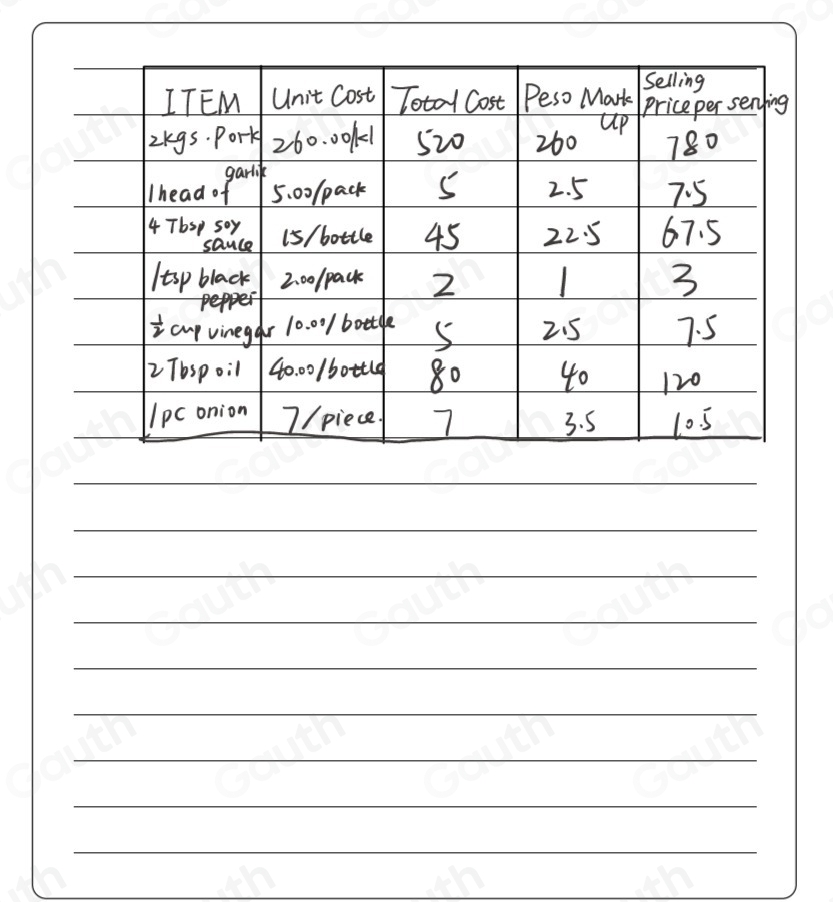 ITEM Unit Cost Total Cost Peso Mark Up Selling Price per serving
2kgs. Pork 260.00/kl 520 260 780
1 head of garlic 5.00/pack 5 2.5 7.5
4 Tbsp soy sauce 15/bottle 45 22.5 67.5
1 tsp black pepper 2.00/pack 2 1 3
1/2 cup vinegar 10.00/bottle 5 2.5 7.5
2 Tbsp oil 40.00/bottle 80 40 120
1 pc onion 7/piece. 7 3.5 10.5
Gauth